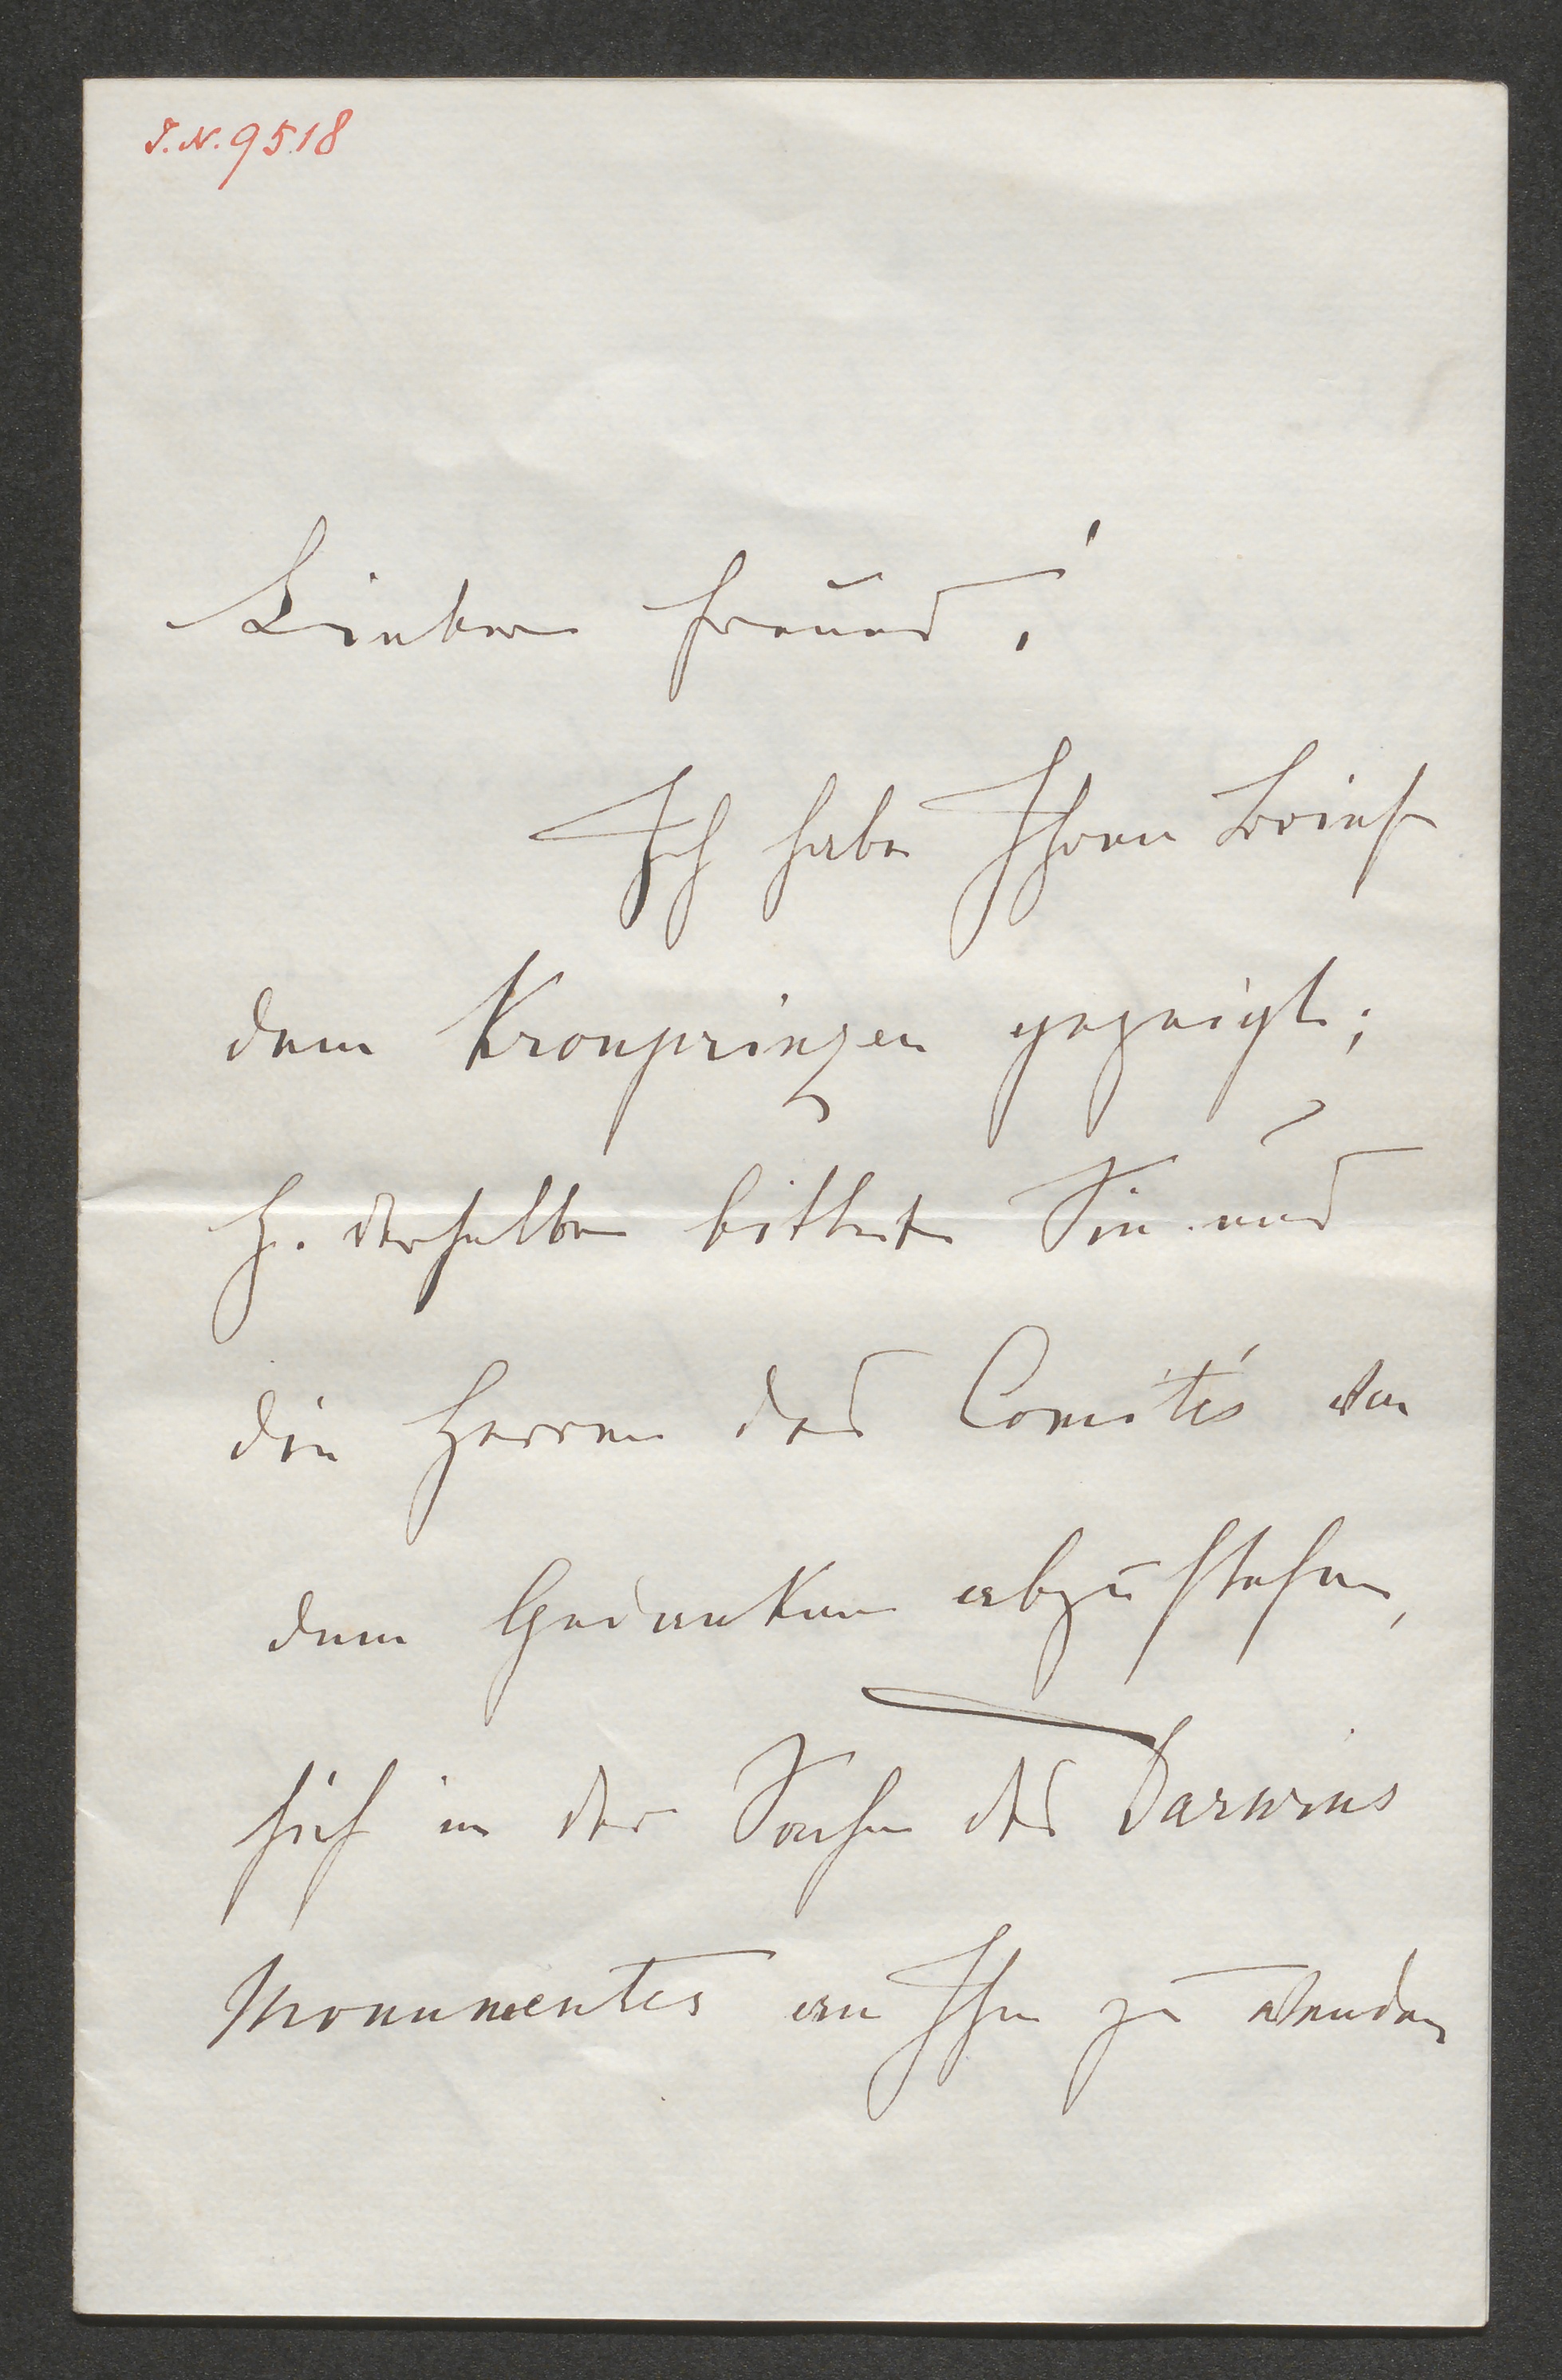 I.N. 9518
Lieber Freund!
Ich habe Ihren Brief
dem Kronprinzen gezeigt;
H. derselbe bittet Sie und
die Herren des Comités von
dem Gedanken abzustehen,
sich in der Sache des Darwins
Monumentes an Ihn zu wenden